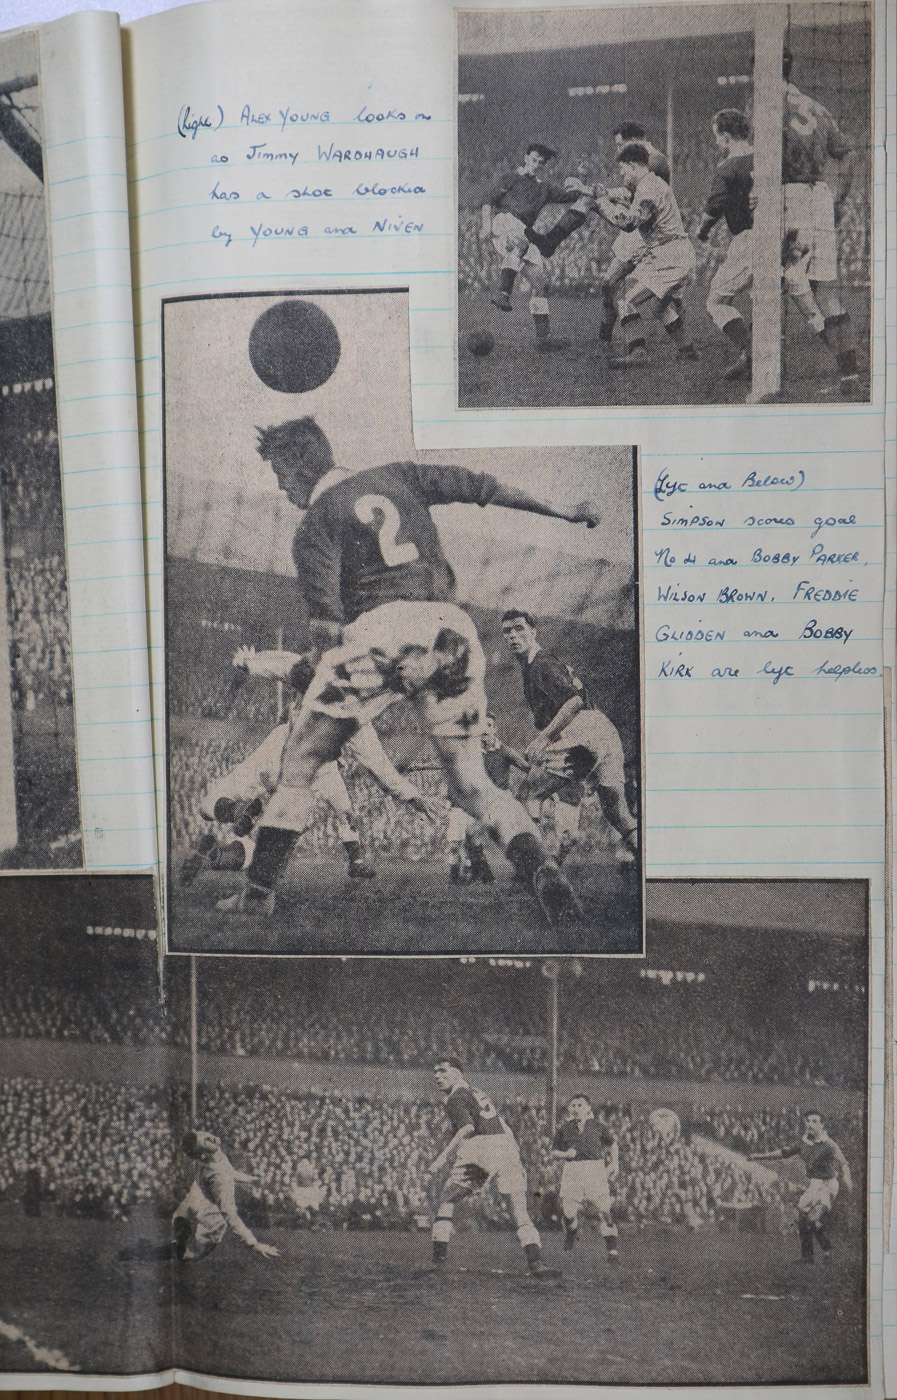 (Right) ALEX YOUNG looks on
as JIMMY WARDHAUGH
has a shot blocked
by YOUNG and NIVEN
(Left and Below)
SIMPSON scores goal
No 4 and BOBBY PARKER,
WILSON BROWN, FREDDIE
GLIDDEN and BOBBY
KIRK are left helpless.
2
3